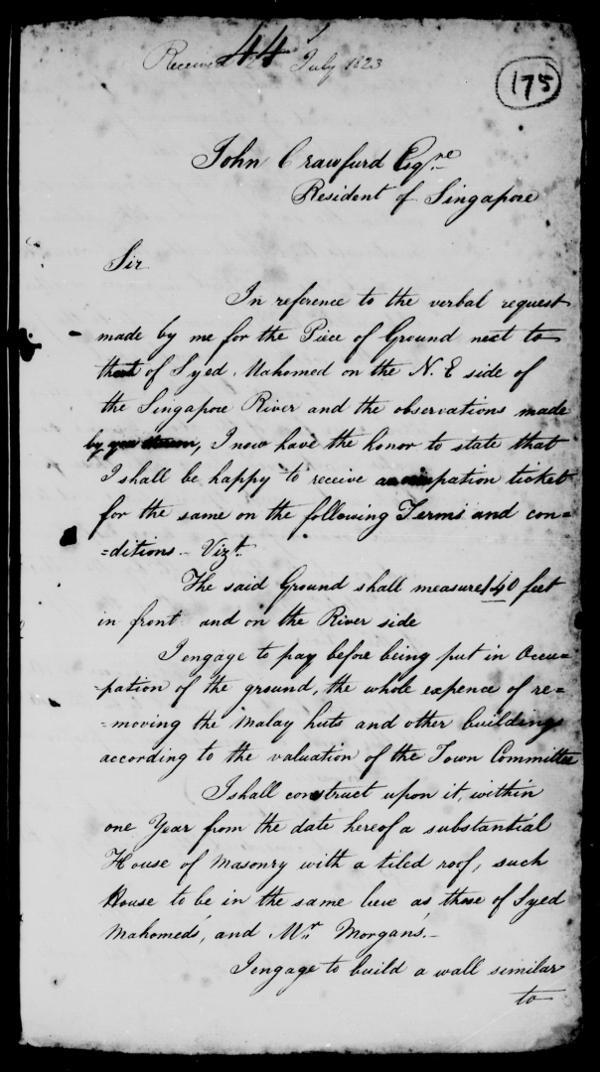 44
Received July 1823
175
John Crawfurd Esqre
Resident of Singapore
Sir
In reference to the verbal request
made by me for the Piece of Ground next to
that of Syed Mahomed on the N. E side of
the Singapore River and the observations made
by you, I now have the honor to state that
I shall be happy to receive pation ticket
for the same on the following Terms and con=
=ditions - Vizt
The said Ground shall measure 140 feet
in front and on the River side
I engage to pay before being put in Occu=
=pation of the ground, the whole expence of re=
=moving the Malay huts and other buildings
according to the valuation of the Town Committee
I shall construct upon it, within
one Year from the date hereof a substantial
House of Masonry with a tiled roof, such
House to be in the same line as those of Syed
Mahomeds', and Mr Morgan's. -
I engage to build a wall similar
to